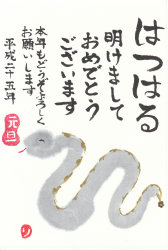 はつはる
明けまして
おめでとう
ございます
本年もどうぞよろしく
お願いします
平成二十五年
元旦
り